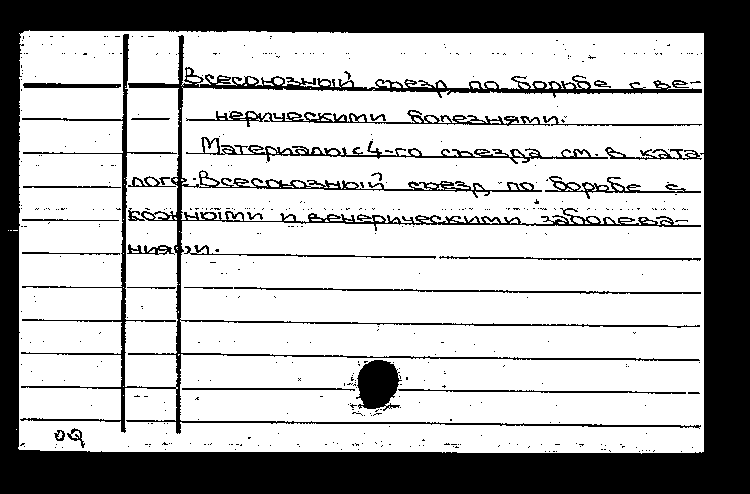 Всесоюзный съезд по борьбе с ве-
нерическими болезнями.
Материалы с 4-го съезда см. в ката-
логе: Всесоюзный съезд по борьбе с
кожными и венерическими заболева-
ниями.